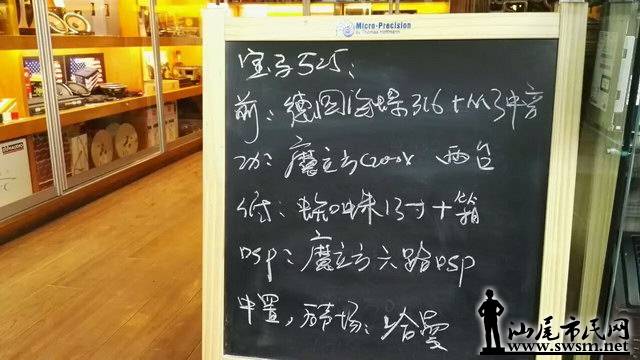 Micro-Precision
by Thomas Hoffmann
宝马525:
前: 德国海螺316+M3中音
功: 魔立方C200X 两台
低: 13寸+箱
DSP: 魔立方六路DSP
中置, 后场: 哈曼
汕尾市民网
www.swsm.net